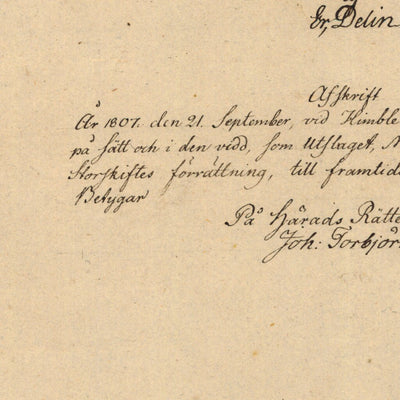 Er, Delin
Afskrift
År 1807. den 21. September, vid Himble
på sätt och i den vidd, som Utslaget, N
Storskiftes förrättning, till framtids
Betygar
På Härads Rätte
Joh: Torbjör